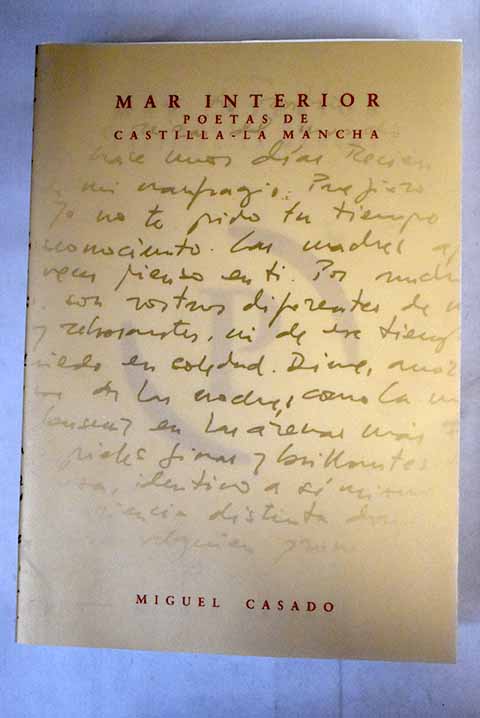 MAR INTERIOR
POETAS DE
CASTILLA-LA MANCHA
hace unos días Recien
mi naufragio. Prefiero
Yo no te pido tu tiempo
conocimiento. Las madres
veces pienso en ti. Por
son rostros diferentes de
y rebosantes, ni de ese tiemp
miedo en soledad. Dime, amor
de las noches, como la
en las arenas más
pieles finas y brillantes
identico a sí mismo
distinta
alguien
MIGUEL CASADO